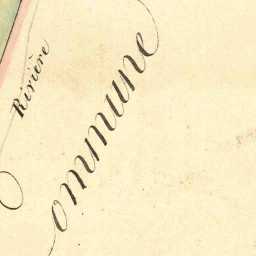 Rivière
ommune